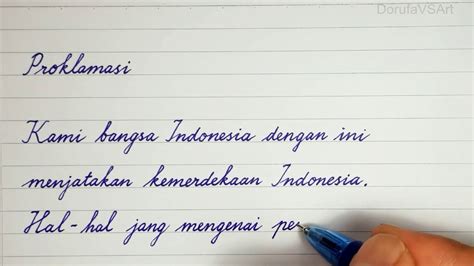 DorufaVSArt
Proklamasi
Kami bangsa Indonesia dengan ini
menjatakan kemerdekaan Indonesia.
Hal-hal jang mengenai pe